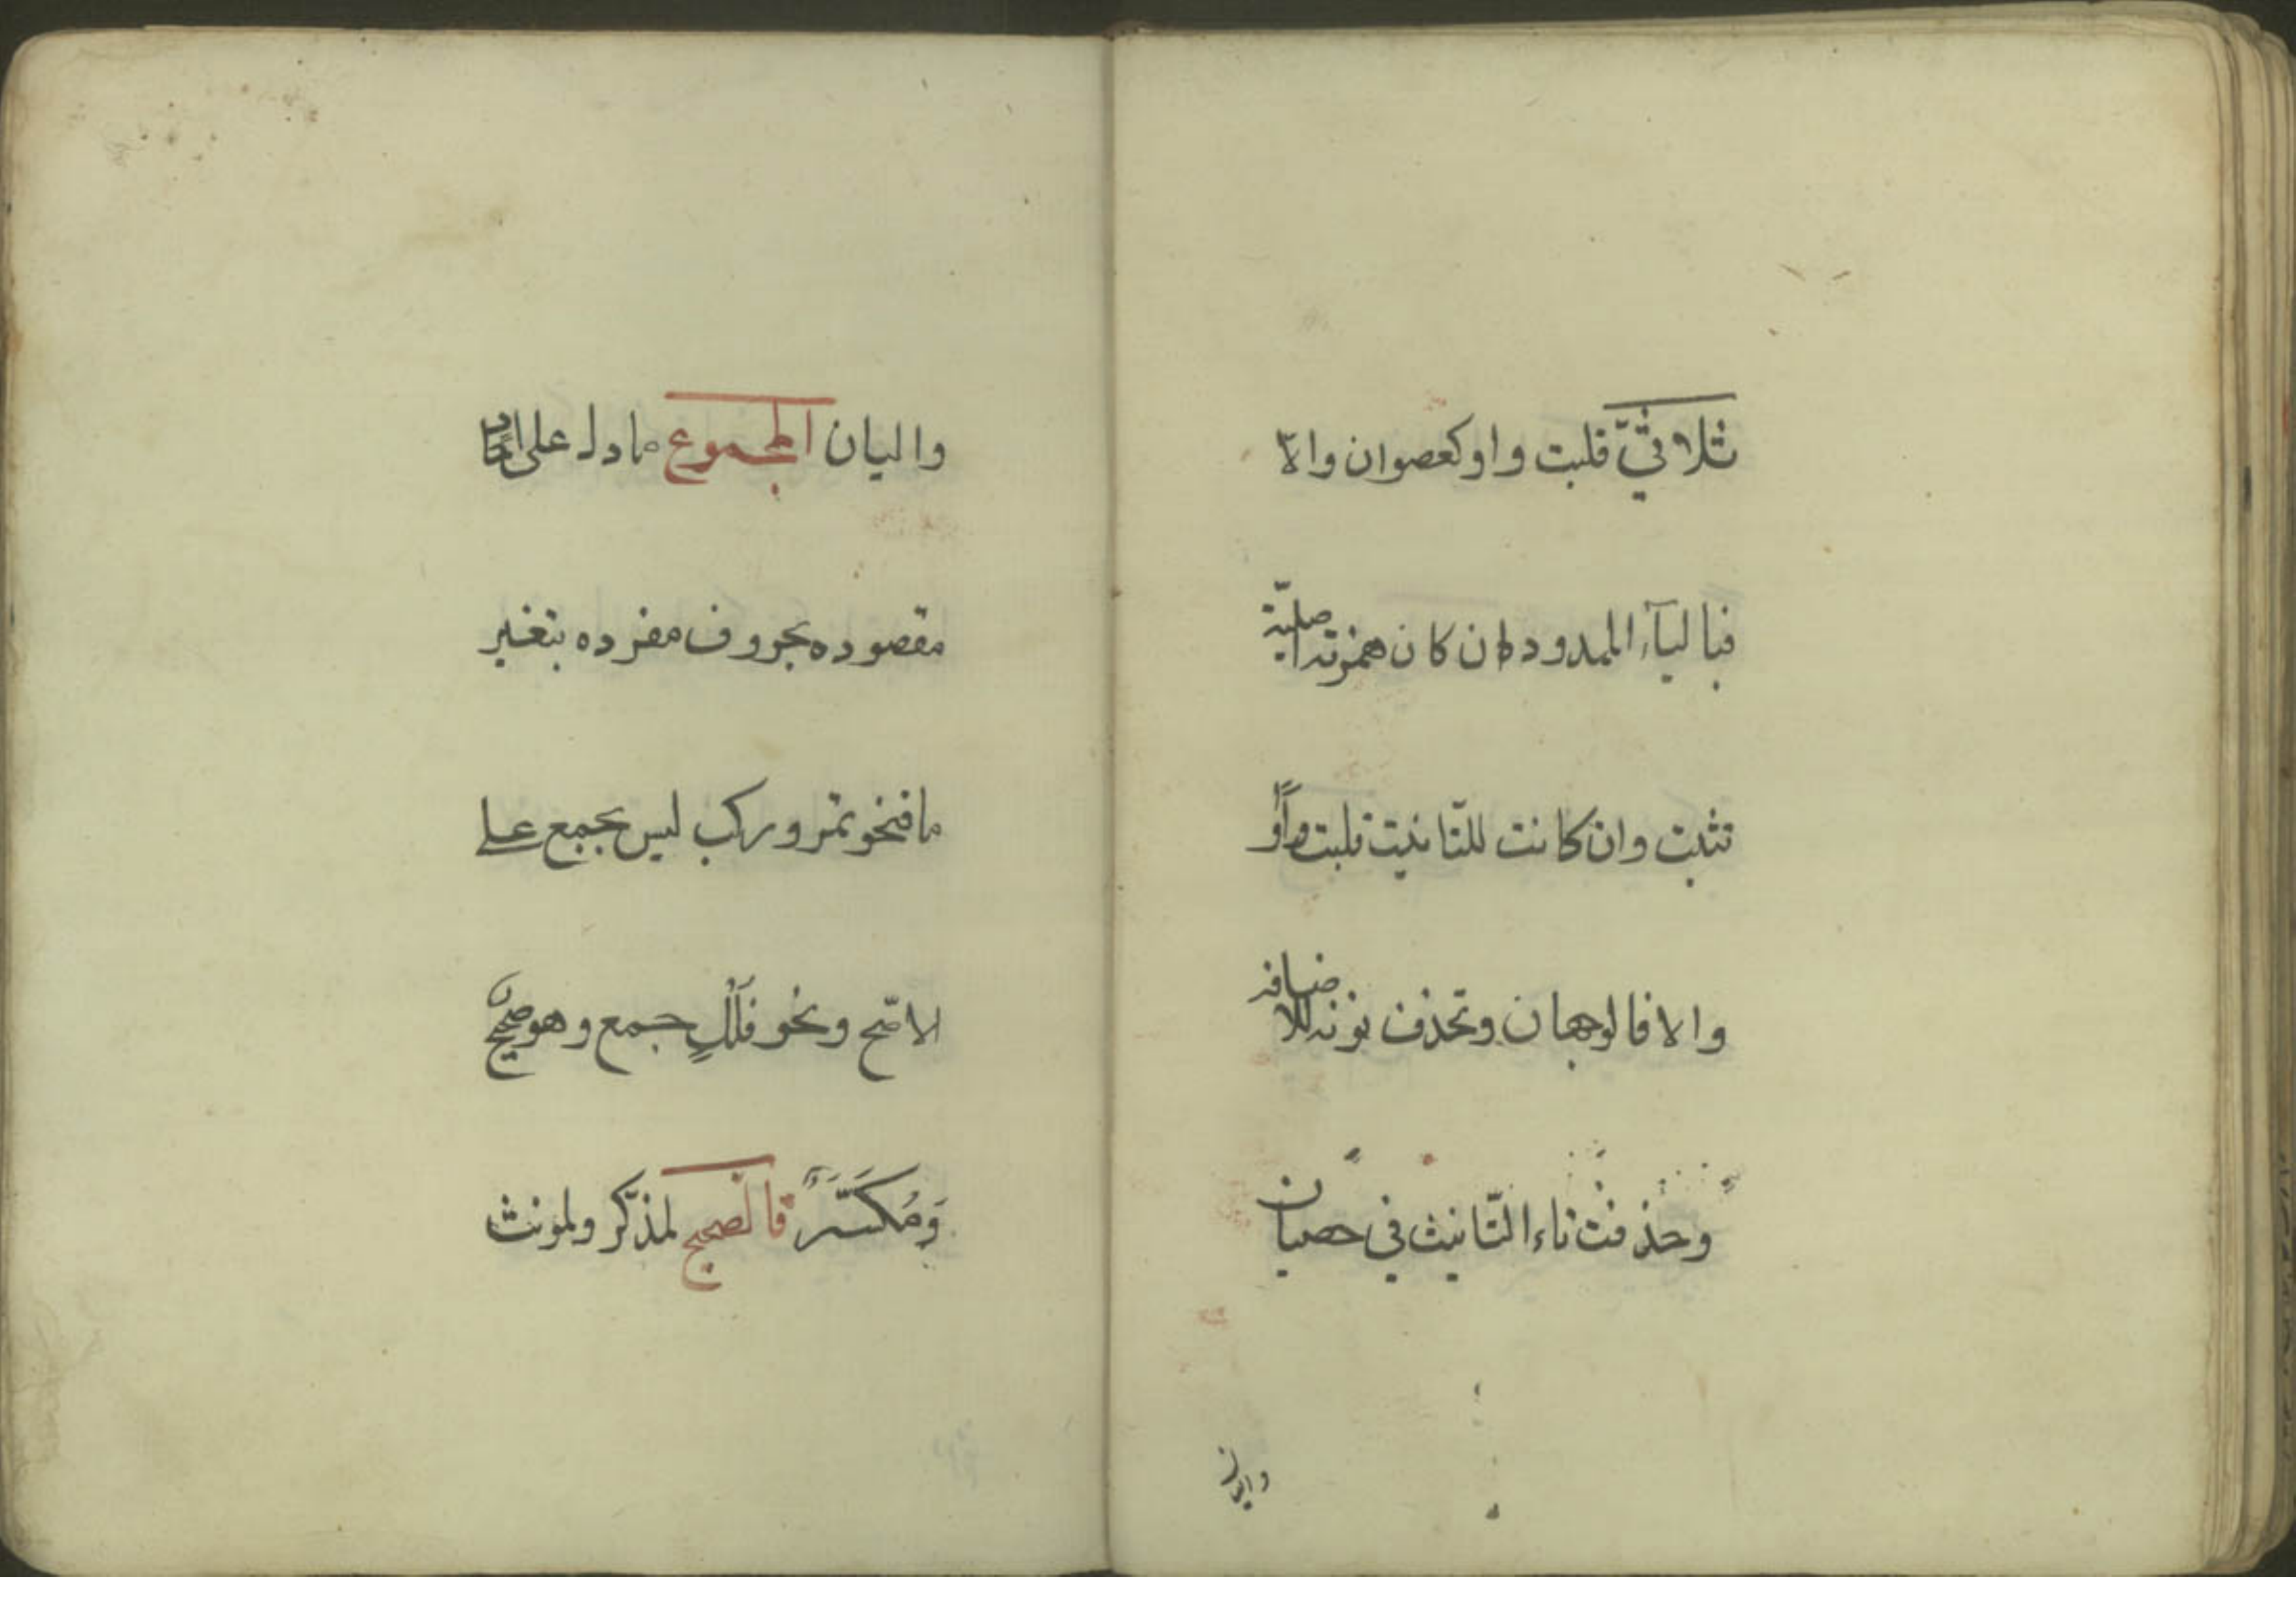 ثلاثيّ قلبت واو كعصوان والّا
فبالياۤء الممدود ان كان همزته اصليّة
تثبت وان كانت للتّانيث قلبت واوًا
والا فالوجهان وتحذف نونه للاضافه
وحذفت تاء التّانيث في خصيان
واليان
واليان المجموع ما دل على احاد
مقصوده بحروف مفرده بتغير
ما فنحو تمر وركب ليس بجمع على
الاصّح ونحو فُلْكٍ جمع وهو صحيح
وَمُكَسَّرٌ فالصحيح لمذكّر ولمونث